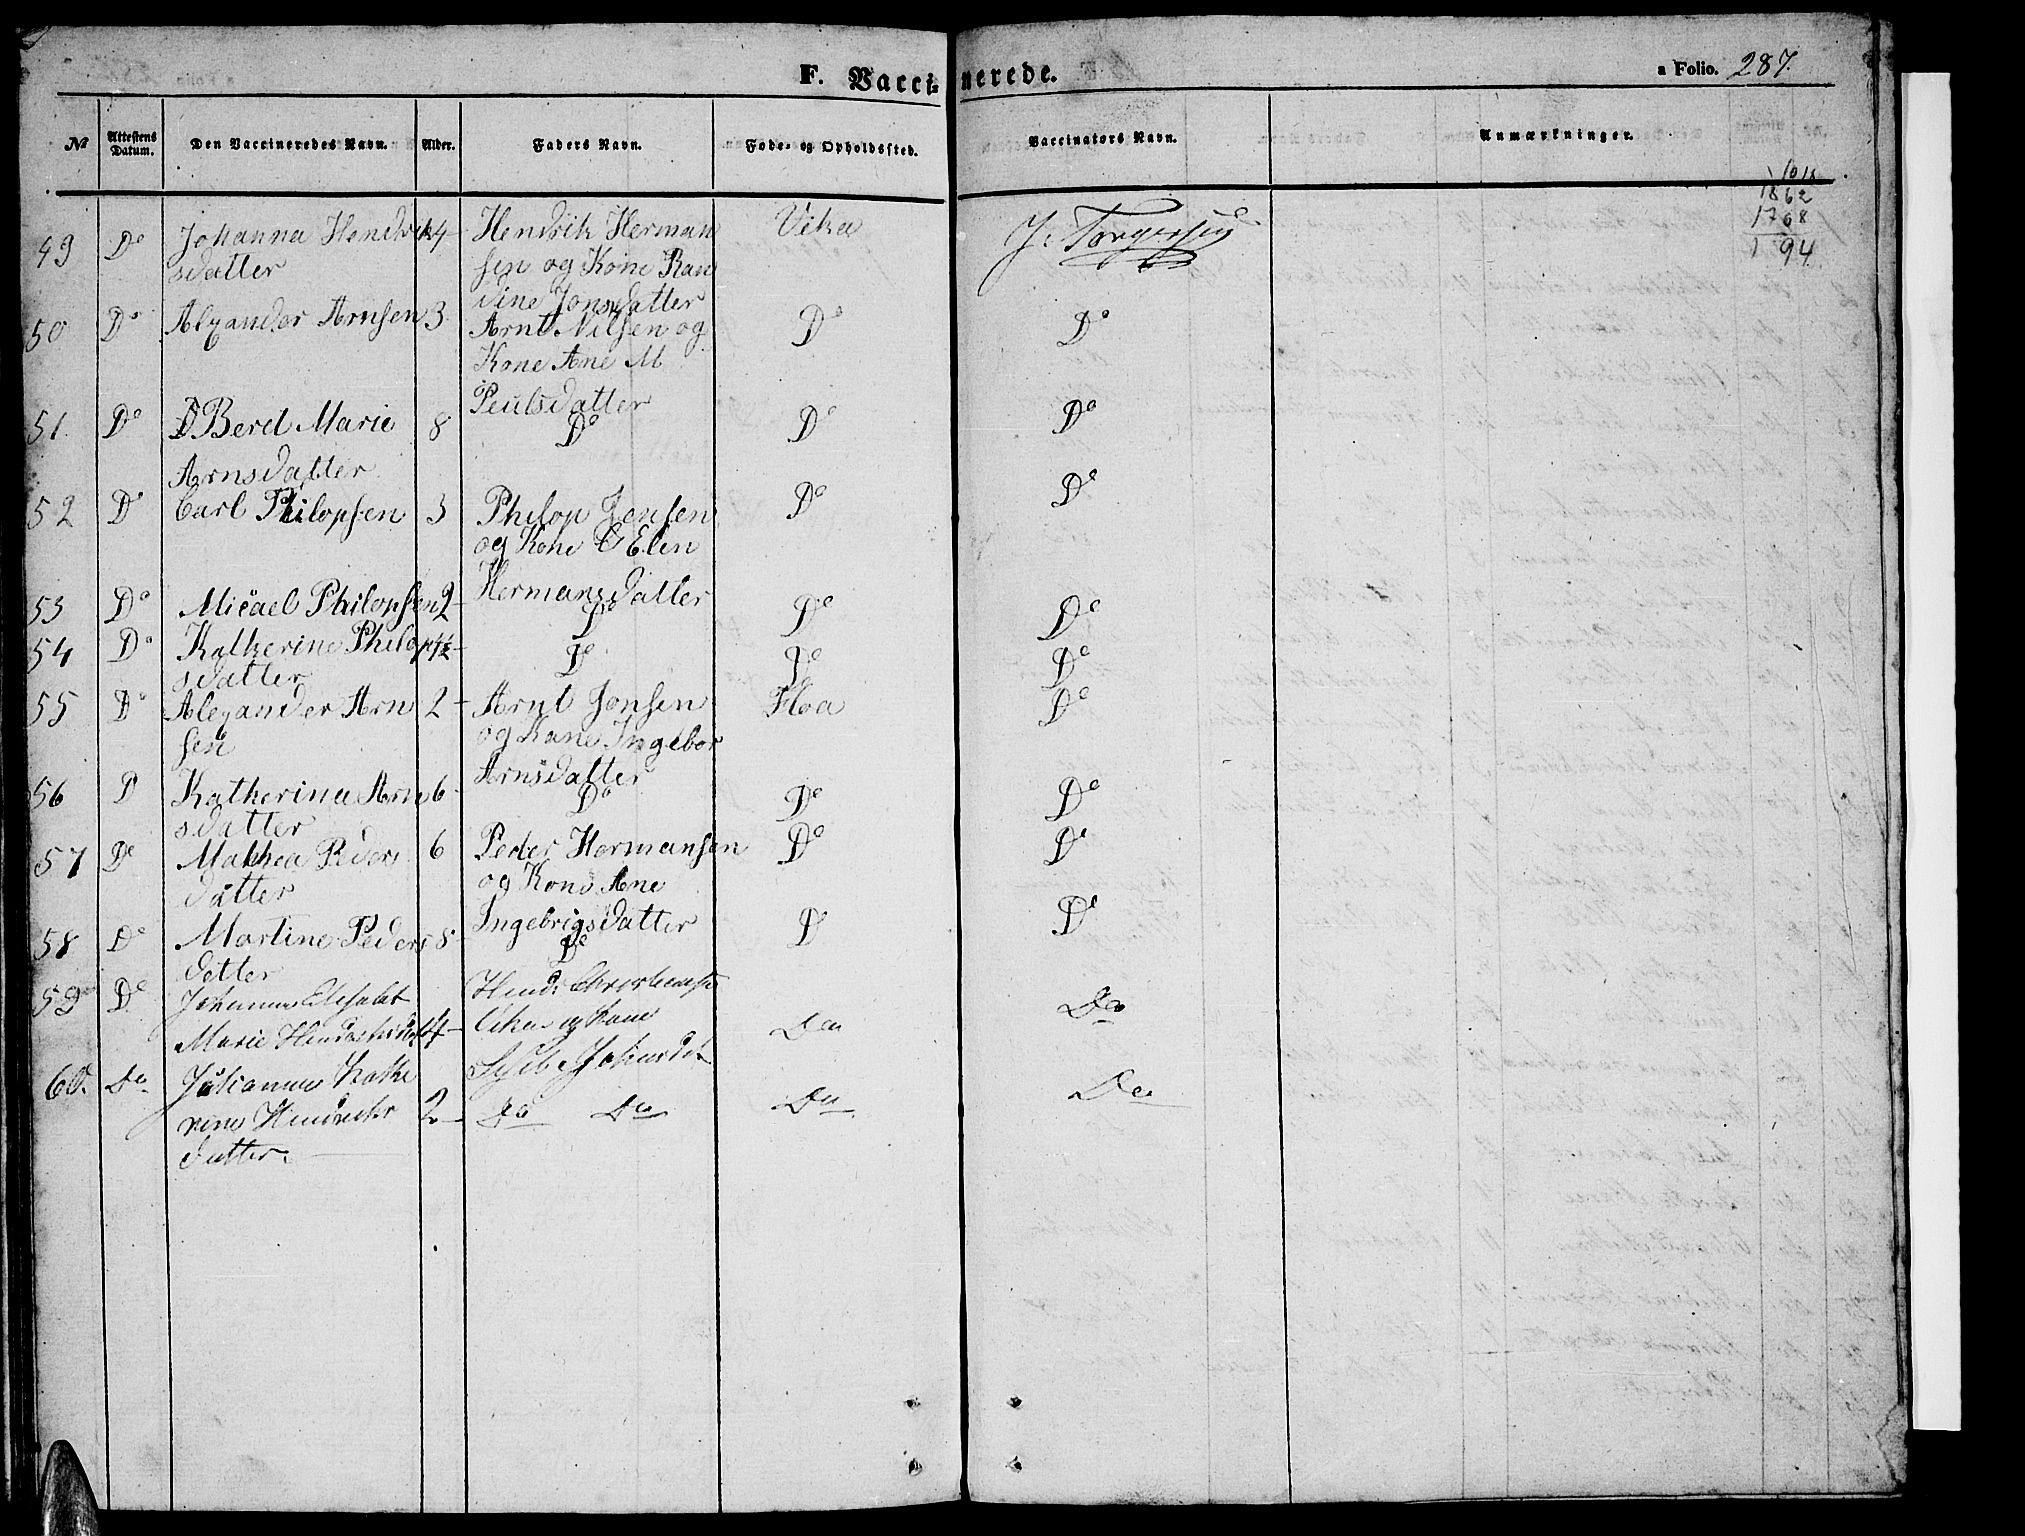 F. Vaccinerede.
a Folio. 287.
No Attestens Datum. Den Vaccineredes Navn. Alder. Faders Navn. Føde- og Opholdssted. Vaccinators Navn. Anmærkninger.
1862
1768
94
49 Do Johanna Hendrik 4 Hendrik Herman Vika J. Torgersen
sdatter sen og Kone Ran
dine Jonsdatter
50 Do Alexander Arnsen 3 Arnt Nilsen og Do Do
Kone Ane M
Peulsdatter
51 Do Beret Marie 8 Do Do Do
Arnsdatter
52 Do Carl Philopsen 3 Philop Jensen Do Do
og Kone Elen
Hermansdatter
53 Do Micael Philopsen 2 Do Do Do
54 Do Katherine Philop 1½ Do Do Do
sdatter
55 Do Alexander Arn 2 Arnt Jonsen Floa Do
sen og Kane Ingebor
Arnsdatter
56 D Katherina Arn 6 Do Do Do
sdatter
57 Do Mathea Peders 6 Peder Hermansen Do Do
datter og Kone Ane
Ingebrigsdatter
58 Do Martine Peders 8 Do D Do
detter
59 Do Johanna Elisabet Hend.
Marie 4 og Kone Do Do
60. Do Julianna Kathe
rine Hendriks 2 Do Do Do Do
datter.